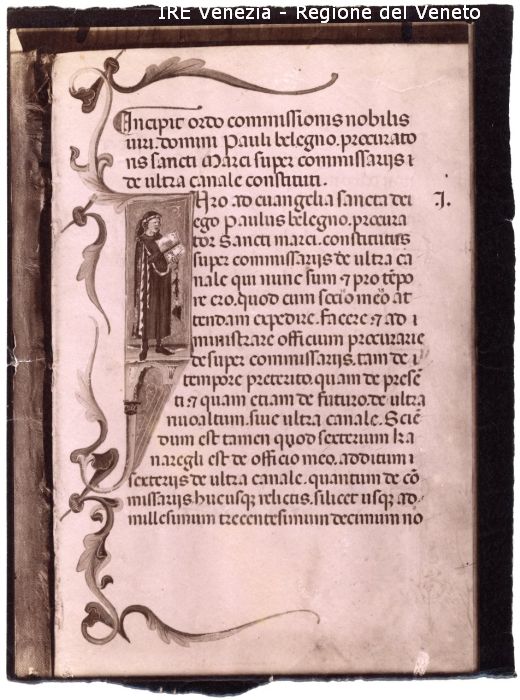 IRE Venezia - Regione del Veneto
Incipit ordo commissionis nobilis
uiri. domini Pauli belegno. procurato
ris sancti Marci super commissarijs i
de ultra canale constituti.
Iuro ad euangelia sancta dei
J.
ego Paulus belegno. procura
tor Sancti marci. constitutus
super commissarijs de ultra ca
nale qui nunc sum ⁊ pro tēpo
re ero. quod cum socijo meo at
tendam expedire. facere ⁊ ad i
ministrare officium procurarie
de super commissarijs. tam de i
tempore preterito. quam de presē
ti ⁊ quam etiam de futuro. de ultra
riuoaltum. siue ultra canale. Sciē
dum est tamen quod sexterium ka
naregli est de officio meo. additum i
sexterijs de ultra canale. quantum de cō
missarijs hucusqȝ relictis. silicet usqȝ ad
millesimum trecentesimum decimum no